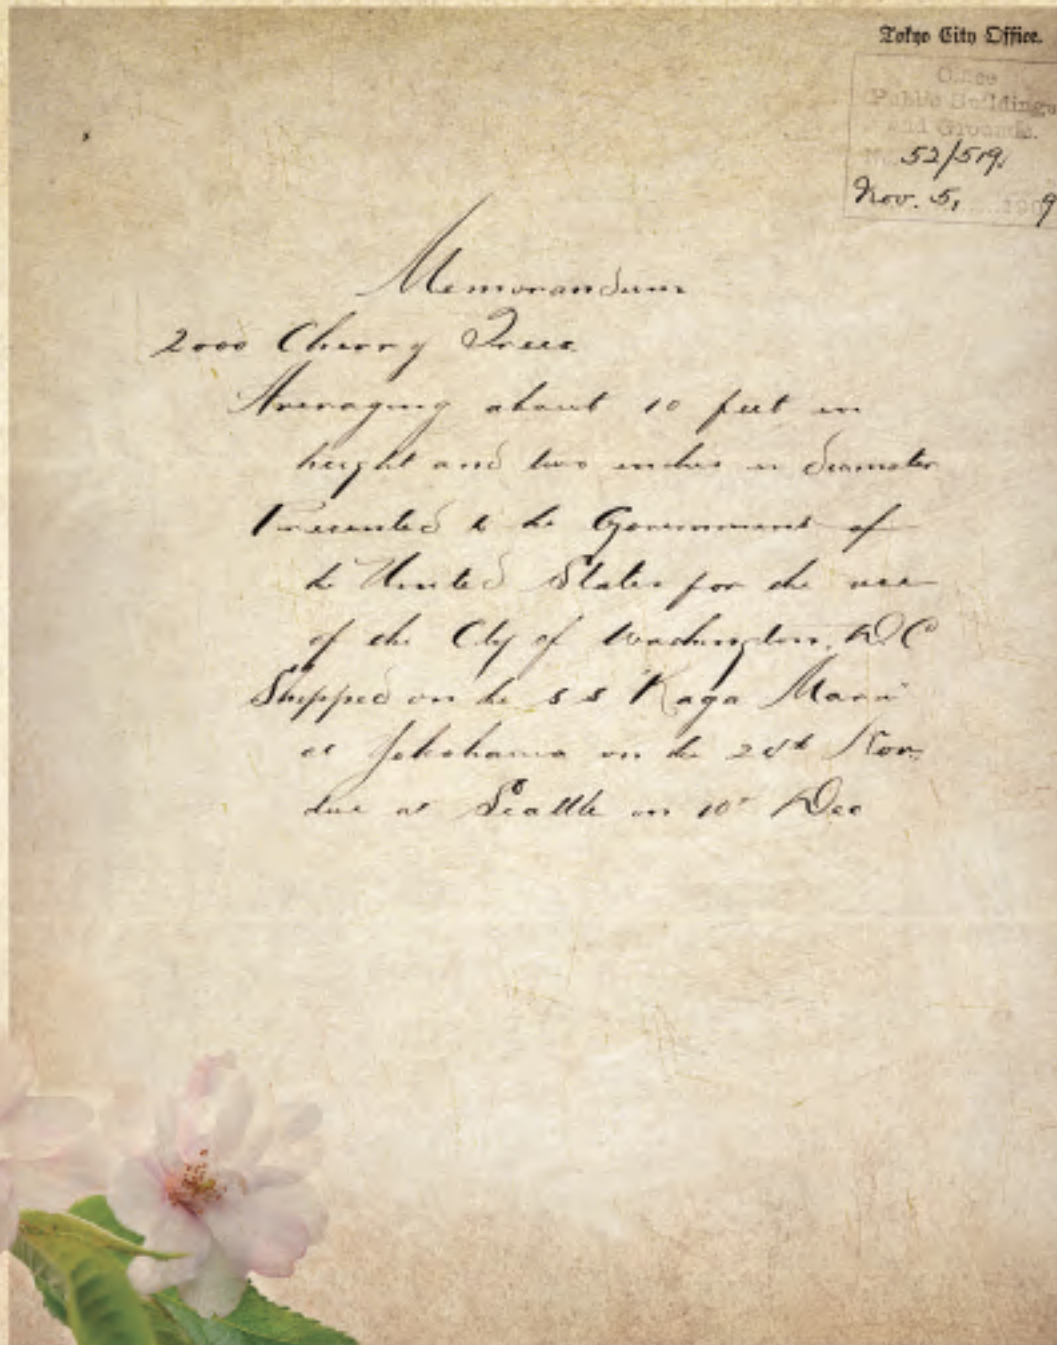 Tokyo City Office.
Office
Public Buildings
and Grounds.
No. 52/519.
Nov. 5, 1909
Memorandum
2000 Cherry Trees
Averaging about 10 feet in
height and two inches in diameter
Presented to the Government of
the United States for the use
of the City of Washington, D C
Shipped on the S S "Kaga Maru"
at Yokohama on the 24th Nov.
due at Seattle on 10th Dec